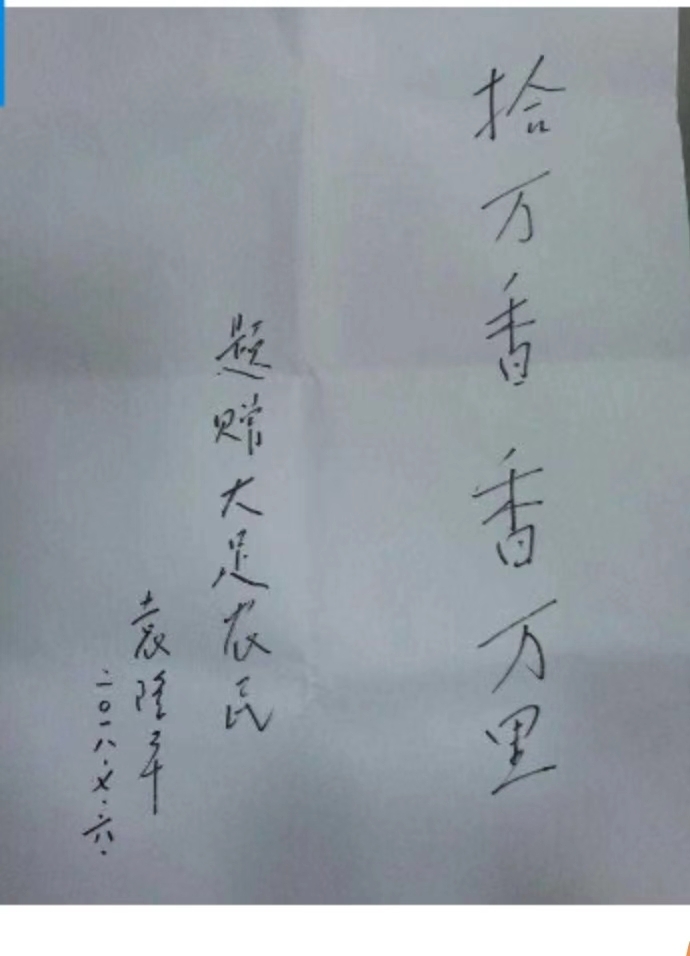 拾万香香万里
题赠大足农民
袁隆平
二〇一八.七.六.